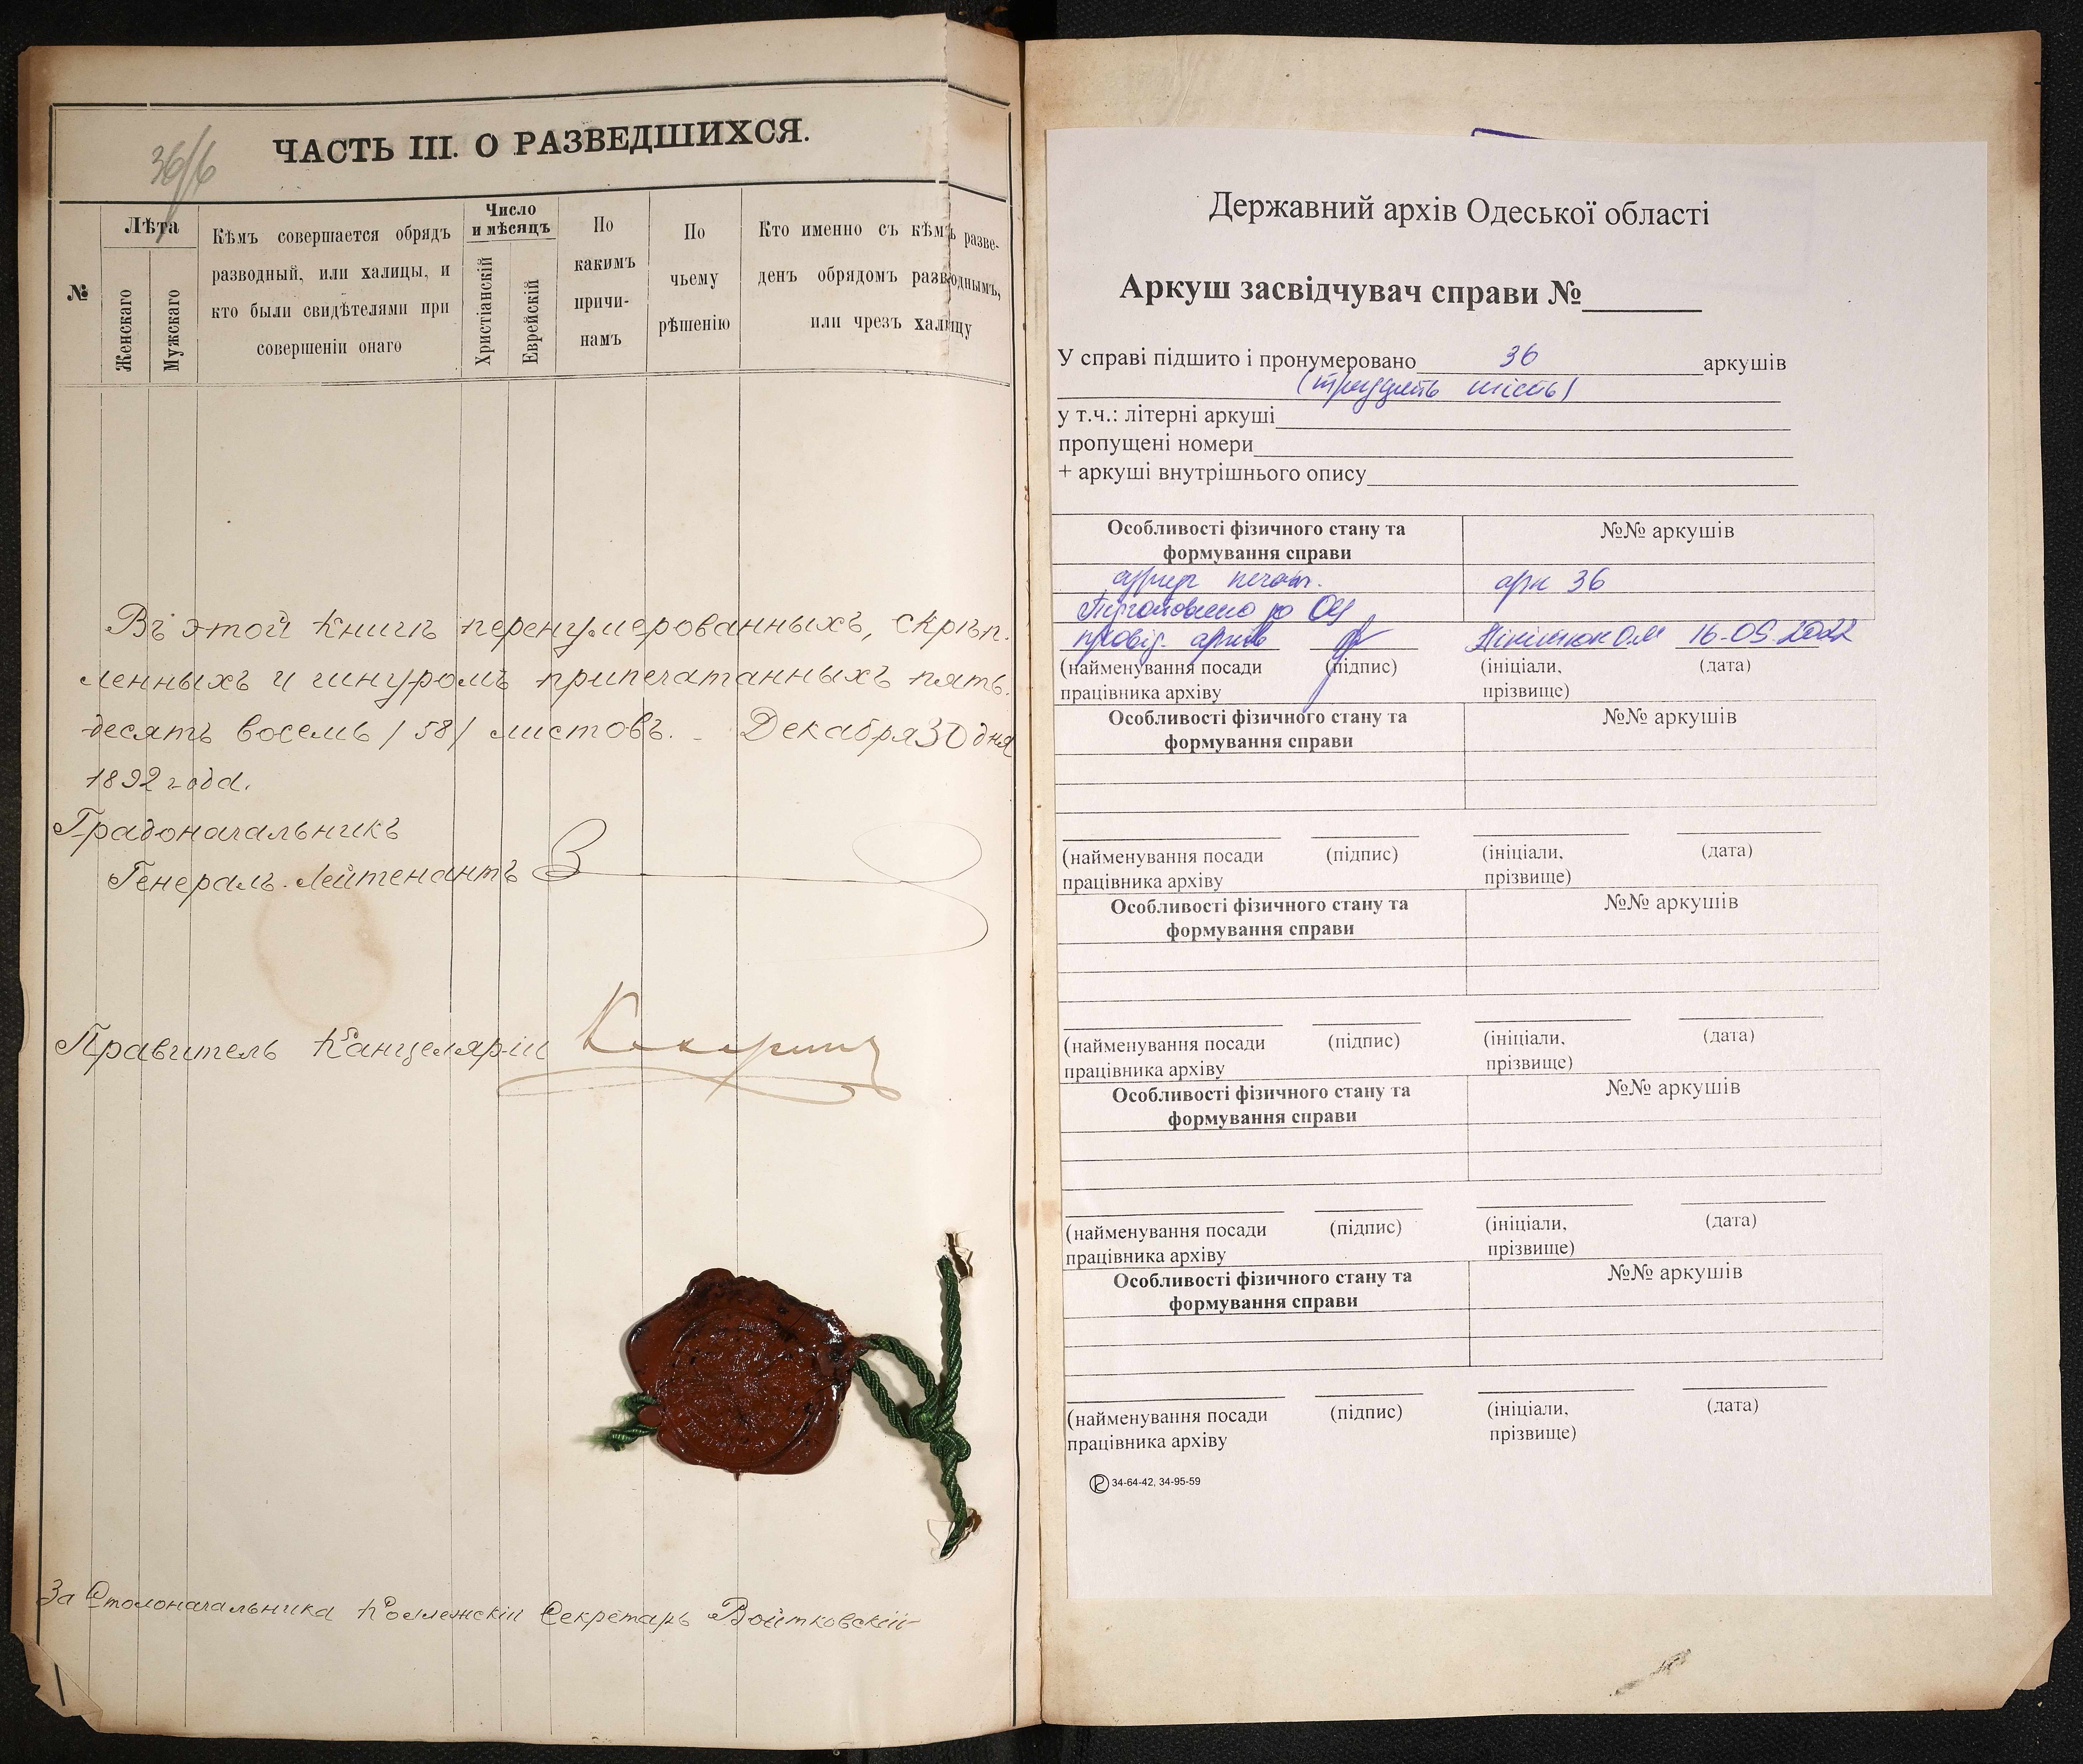 36/6
ЧАСТЬ III. О РАЗВЕДШИХСЯ.
№
Лѣта
Женскаго
Мужскаго
Кѣмъ совершается обрядъ
разводный, или халицы, и
кто были свидѣтелями при
совершеніи онаго
Число
и мѣсяцъ
Христіанскій
Еврейскій
По
какимъ
причи-
намъ
По
чьему
рѣшенію
Кто именно съ кѣмъ разве-
денъ обрядомъ разводнымъ,
или чрезъ халицу
Въ этой книгѣ перенумерованныхъ, скрѣп-
ленныхъ и шнуромъ припечатанныхъ пять-
десятъ восемь /58/ листовъ. Декабря 30 дня
1892 года.
Градоначальникъ
Генералъ-Лейтенантъ
Правитель Канцеляріи
За Столоначальника Коллежскій Секретарь Войтковскій
Державний архів Одеської області
Аркуш засвідчувач справи №
У справі підшито і пронумеровано 36 аркушів
(тридцять шість)
у т.ч.: літерні аркуші
пропущені номери
+ аркуші внутрішнього опису
Особливості фізичного стану та
формування справи
№№ аркушів
арк 36
Підготовлено до ОЦ
провід. архів 16.05.2022
(найменування посади
працівника архіву
(підпис)
(ініціали,
прізвище)
(дата)
Особливості фізичного стану та
формування справи
№№ аркушів
(найменування посади
працівника архіву
(підпис)
(ініціали,
прізвище)
(дата)
Особливості фізичного стану та
формування справи
№№ аркушів
(найменування посади
працівника архіву
(підпис)
(ініціали,
прізвище)
(дата)
Особливості фізичного стану та
формування справи
№№ аркушів
(найменування посади
працівника архіву
(підпис)
(ініціали,
прізвище)
(дата)
Особливості фізичного стану та
формування справи
№№ аркушів
(найменування посади
працівника архіву
(підпис)
(ініціали,
прізвище)
(дата)
34-64-42, 34-95-59